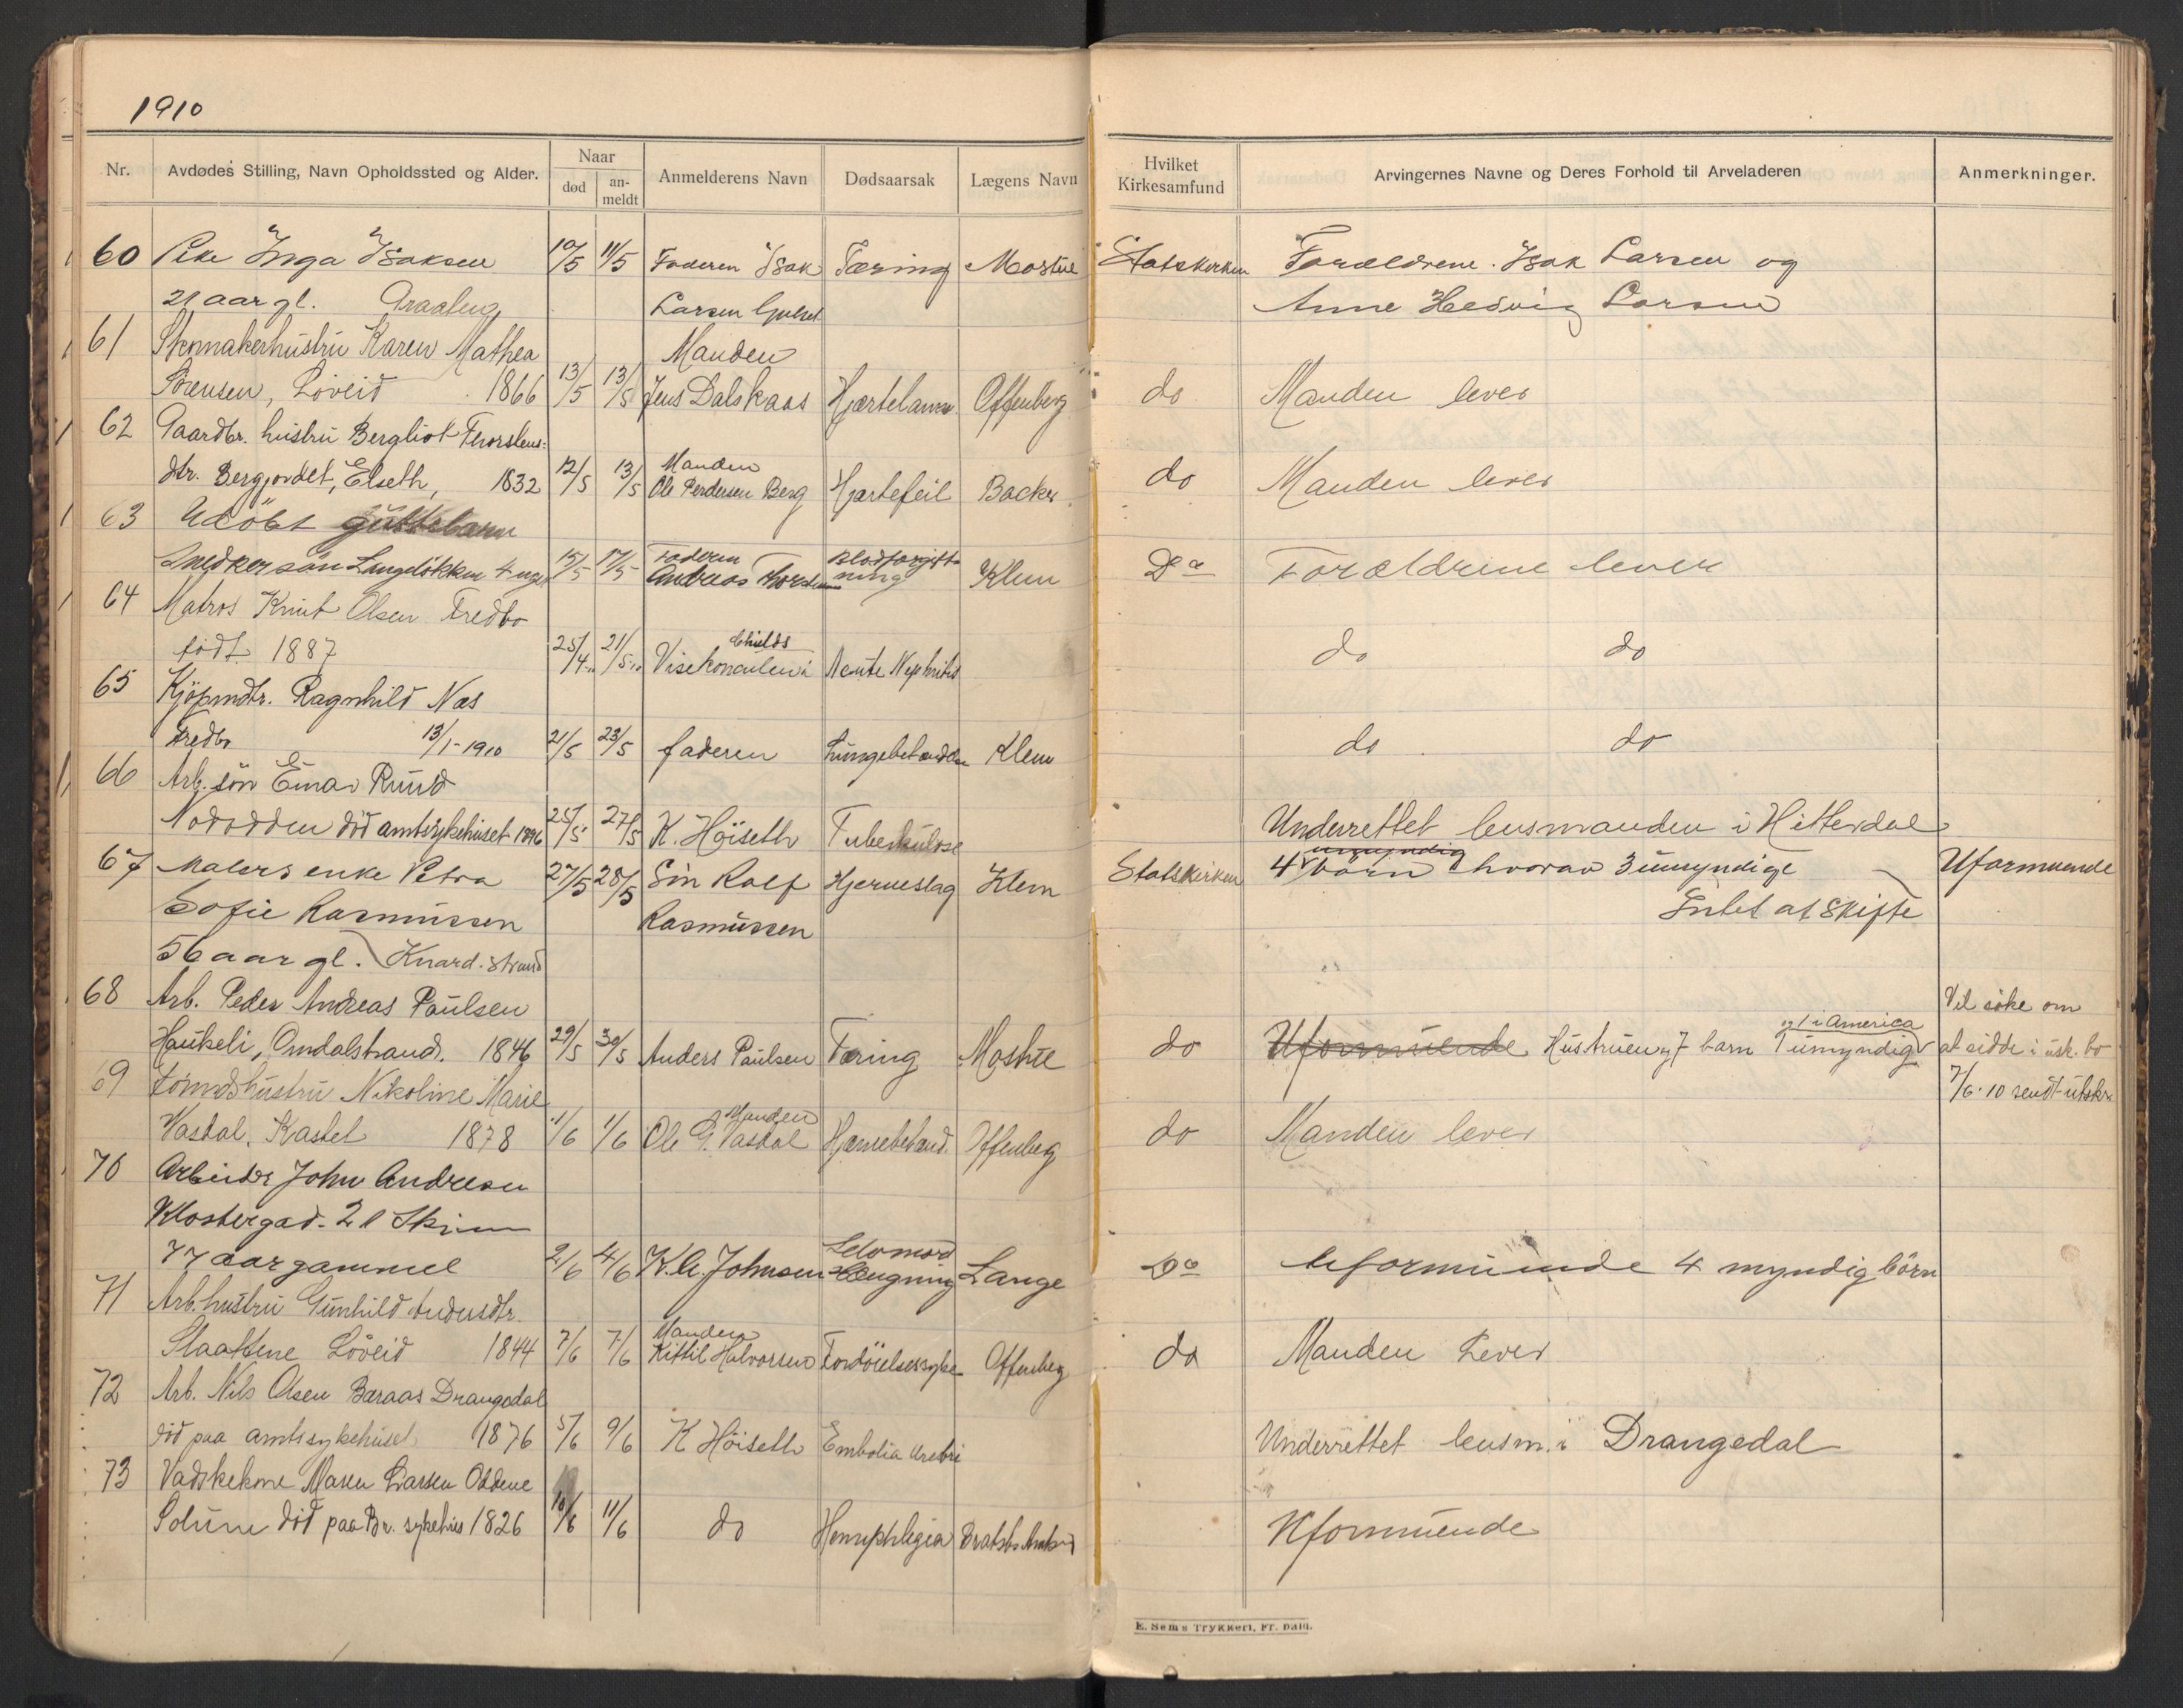 1910
Nr. Avdødes Stilling, Navn Opholdssted og Alder. Naar død an-meldt Anmelderens Navn Dødsaarsak Lægens Navn Hvilket Kirkesamfund Arvingernes Navne og Deres Forhold til Arveladeren Anmerkninger.
60 Pike Inga Isaksen 10/5 11/5 Faderen Isak Tæring Mostue Statskirken Forældrene. Isak Larsen og
21 aar gl. Larsen Anne Hedvig Larsen
61 Skomakerhustru Karen Mathea Manden
Sörensen, Löveid 1866 13/5 13/5 Jens Dalskaas Hjertelam. Offenberg do Manden lever
62 Gaardbr. hustru Bergliot Thorstens-
dtr. Bergjordet, Elseth, 1832 12/5 13/5 Manden Ole Pedersen Berg Hjertefeil Backer do Manden lever
63 Udöbt guttebarn
Snedkersön Langelökken 4 uger 15/5 17/5 Faderen Andreas Blodforgift-ning Klem Do Forældrene lever
64 Matros Knut Olsen Tredbo
födt 1887 25/4 21/5 Visekonsulen i Childs Acute Nephritis do do
65 Kjöpmdtr. Ragnhild Næs
Tredbo 13/1-1910 21/5 23/5 faderen Lungebetændelse Klem do do
66 Arb. sön Einar Ruud
Notodden död amtsykehuset 1896 25/5 27/5 K. Höiseth Tuberkulose Underrettet lensmanden i Hitterdal
67 Malers enke Petra 27/5 28/5 Sön Rolf Hjerneslag Klem Statskirken 4 börn hvorav 3 umyndige Uformuende
Sofie Rasmussen Rasmussen Intet at skifte
56 aar gl. Knard. strand
68 Arb. Peder Andreas Paulsen Vil söke om
Haukeli, Omdalstrand. 1846 29/5 30/5 Anders Paulsen Tæring Mostue do Uformuende Hustruen og 7 barn 1 umyndig og 1 i America at sidde i usk. bo
7/6-10 sendt utskr.
69 Tömmdshustru Nikoline Marie
Vasdal, Kastet 1878 1/6 1/6 Manden Ole G. Vasdal Hjernebetænd. Offenberg do Manden lever
70 Arbeider John Andresen
Klostergad. 21 Skien
77 aar gammel 2/6 4/6 K. A. Johnsen Selvmord Hængning Lange Do Uformuende 4 myndig börn
71 Arb. hustru Gunhild Andersdtr.
Slaattene Löveid 1844 7/6 7/6 Manden Kittil Halvorsen Fordöielsessyke Offenberg do Manden Lever
72 Arb. Nils Olsen Bæraas Drangedal
död paa amtssykehuset 1876 5/6 9/6 K Höiseth Embolia Underrettet lensm. i Drangedal
73 Vadskekone Maren Larsen Oddene
Solum död paa Br. sykehus 1826 10/6 11/6 do Hemiphlegia Uformuende
E. Sems Trykkeri, Fr. hald.